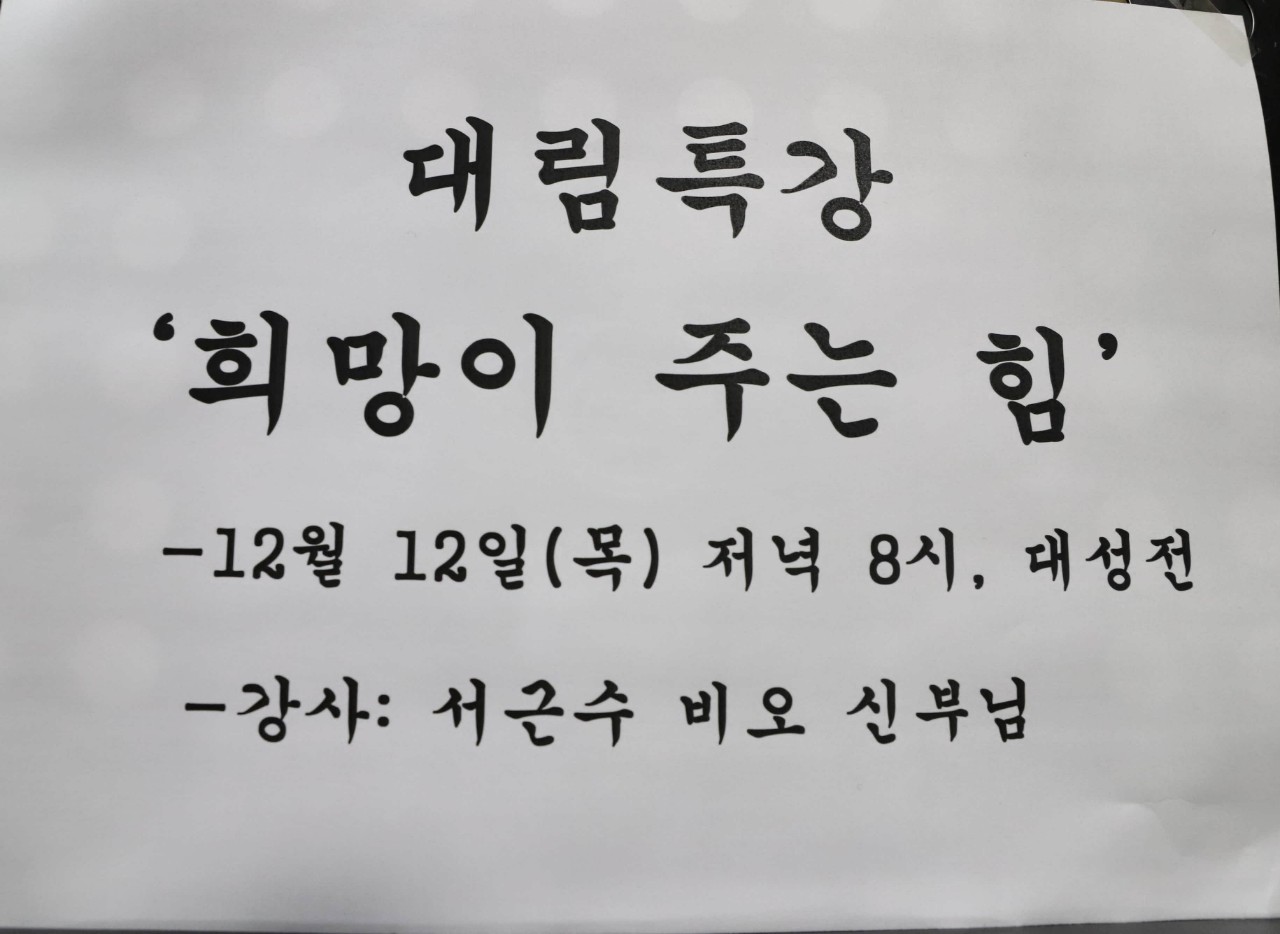 대림특강
‘희망이 주는 힘’
-12월 12일(목) 저녁 8시, 대성전
-강사: 서근수 비오 신부님